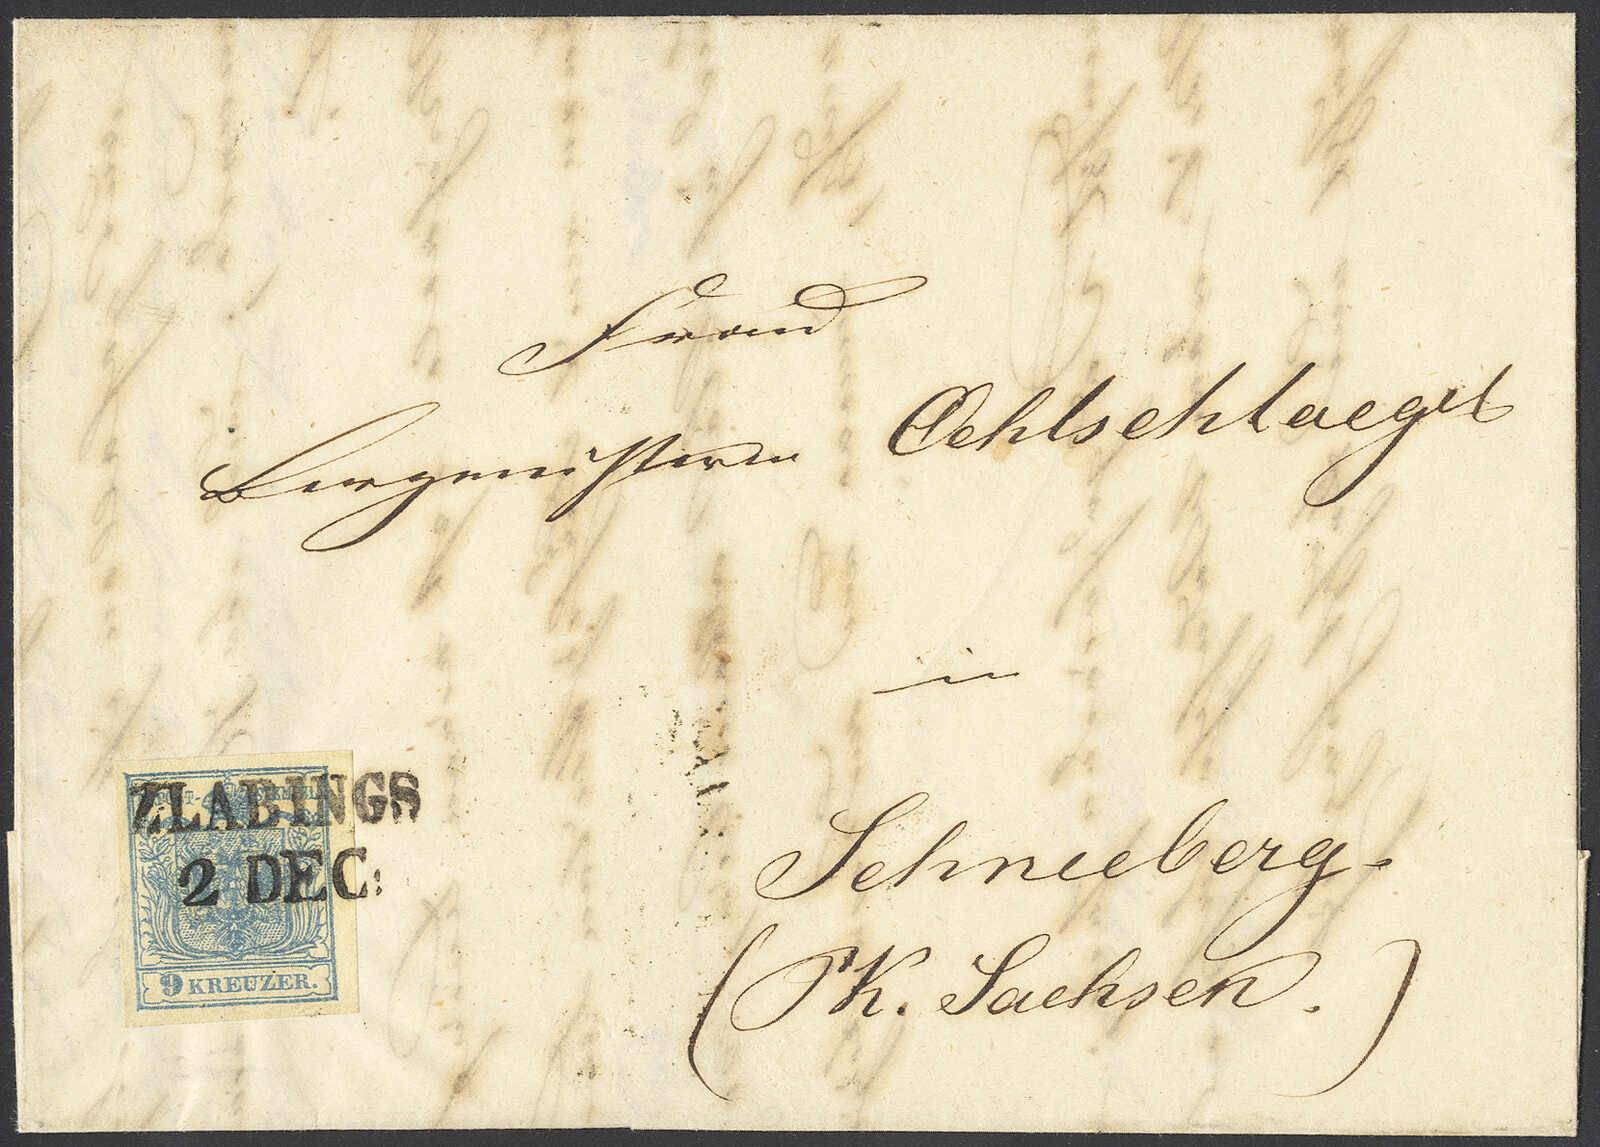 Frau
Bergmeisterin Oehlschlaegel
in
Schneeberg.
(K. Sachsen.)
ZLABINGS
2 DEC:
9 KREUZER.